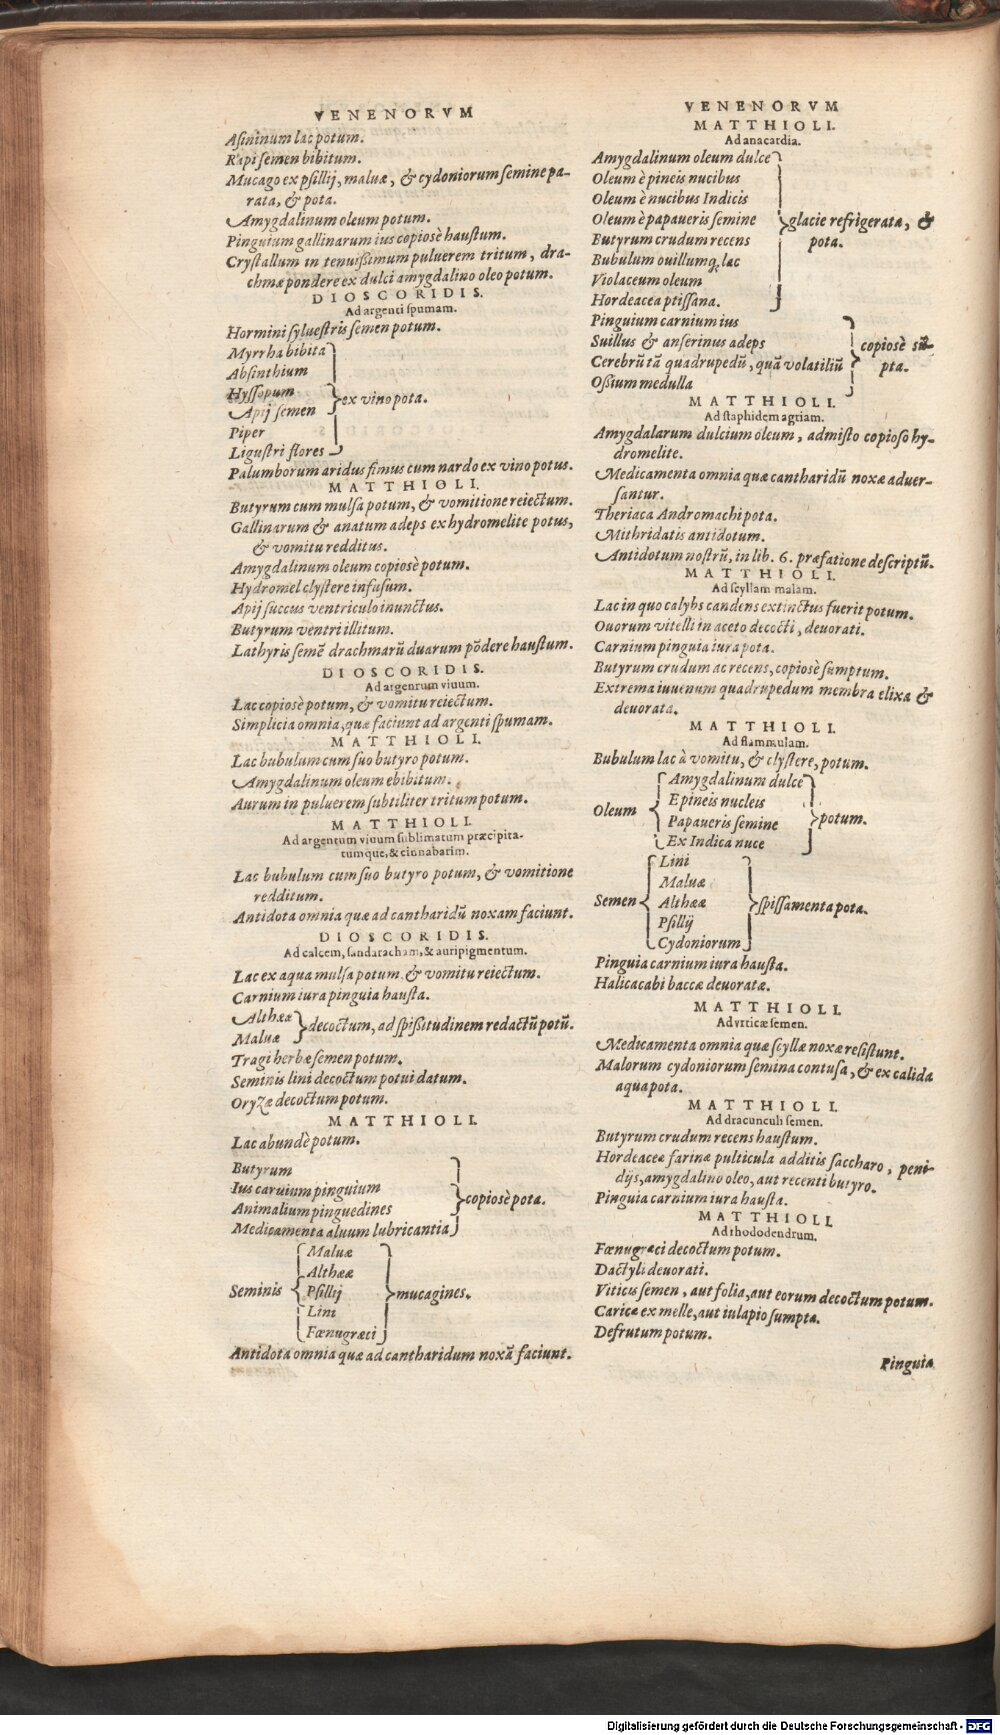 VENENORVM
Asininum lac potum.
Rapi semen bibitum.
Mucago ex psillij, maluæ, & cydoniorum semine pa-
rata, & pota.
Amygdalinum oleum potum.
Pinguium gallinarum ius copiosè haustum.
Crystallum in tenuissimum puluerem tritum, dra-
chmæ pondere ex dulci amygdalino oleo potum.
DIOSCORIDIS.
Ad argenti spumam.
Hormini syluestris semen potum.
Myrrha bibita
Absinthium
Hyssopum
Apij semen
Piper
Ligustri flores
ex vino pota.
Palumborum aridus fimus cum nardo ex vino potus.
MATTHIOLI.
Butyrum cum mulsa potum, & vomitione reiectum.
Gallinarum & anatum adeps ex hydromelite potus,
& vomitu redditus.
Amygdalinum oleum copiosè potum.
Hydromel clystere infusum.
Apij succus ventriculo inunctus.
Butyrum ventri illitum.
Lathyris semē drachmarū duarum pōdere haustum.
DIOSCORIDIS.
Ad argentum viuum.
Lac copiosè potum, & vomitu reiectum.
Simplicia omnia, quæ faciunt ad argenti spumam.
MATTHIOLI.
Lac bubulum cum suo butyro potum.
Amygdalinum oleum ebibitum.
Aurum in puluerem subtiliter tritum potum.
MATTHIOLI.
Ad argentum viuum sublimatum præcipita-
tumque, & cinnabarim.
Lac bubulum cum suo butyro potum, & vomitione
redditum.
Antidota omnia quæ ad cantharidū noxam faciunt.
DIOSCORIDIS.
Ad calcem, sandaracham, & auripigmentum.
Lac ex aqua mulsa potum & vomitu reiectum.
Carnium iura pinguia hausta.
Althææ
Maluæ
decoctum, ad spissitudinem redactū potū.
Tragi herbæ semen potum.
Seminis lini decoctum potui datum.
Oryzæ decoctum potum.
MATTHIOLI.
Lac abundè potum.
Butyrum
Ius carnium pinguium
Animalium pinguedines
Medicamenta aluum lubricantia
copiosè pota.
Seminis
Maluæ
Althææ
Psillij
Lini
Fœnugræci
mucagines.
Antidota omnia quæ ad cantharidum noxā faciunt.
VENENORVM
MATTHIOLI.
Ad anacardia.
Amygdalinum oleum dulce
Oleum è pineis nucibus
Oleum è nucibus Indicis
Oleum è papaueris semine
Butyrum crudum recens
Bubulum ouillumq; lac
Violaceum oleum
Hordeacea ptissana.
glacie refrigerata, &
pota.
Pinguium carnium ius
Suillus & anserinus adeps
Cerebrū tā quadrupedū, quā volatiliū
Ossium medulla
copiosè sū-
pta.
MATTHIOLI.
Ad staphidem agriam.
Amygdalarum dulcium oleum, admisto copioso hy-
dromelite.
Medicamenta omnia quæ cantharidū noxæ aduer-
santur.
Theriaca Andromachi pota.
Mithridatis antidotum.
Antidotum nostrū, in lib. 6. præfatione descriptū.
MATTHIOLI.
Ad scyllam malam.
Lac in quo calybs candens extinctus fuerit potum.
Ouorum vitelli in aceto decocti, deuorati.
Carnium pinguia iura pota.
Butyrum crudum ac recens, copiosè sumptum.
Extrema iuuenum quadrupedum membra elixa &
deuorata.
MATTHIOLI.
Ad flammulam.
Bubulum lac à vomitu, & clystere, potum.
Oleum
Amygdalinum dulce
E pineis nucleis
Papaueris semine
Ex Indica nuce
potum.
Semen
Lini
Maluæ
Althææ
Psillij
Cydoniorum
spissamenta pota.
Pinguia carnium iura hausta.
Halicacabi baccæ deuoratæ.
MATTHIOLI.
Ad vrticæ semen.
Medicamenta omnia quæ scyllæ noxæ resistunt.
Malorum cydoniorum semina contusa, & ex calida
aqua pota.
MATTHIOLI.
Ad dracunculi semen.
Butyrum crudum recens haustum.
Hordeaceæ farinæ pulticula additis saccharo, peni-
dijs, amygdalino oleo, aut recenti butyro.
Pinguia carnium iura hausta.
MATTHIOLI.
Ad rhododendrum.
Fœnugræci decoctum potum.
Dactyli deuorati.
Viticis semen, aut folia, aut eorum decoctum potum.
Caricæ ex melle, aut iulapio sumpta.
Defrutum potum.
Pinguia
Digitalisierung gefördert durch die Deutsche Forschungsgemeinschaft - DFG